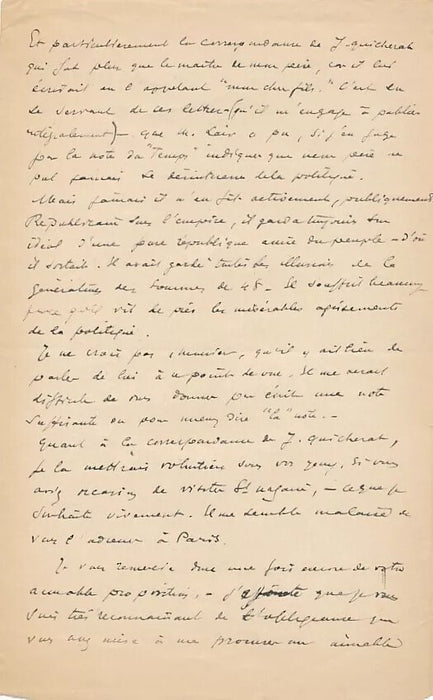 Et particulièrement la correspondance de J. Quicherat
qui fut plus que le maître de mon père, car il lui
écrivait en l'appelant "mon cher fils." C'est en
se servant de ces lettres (qu'il m'engage à publier
intégralement) – que M. Lair a pu, si j'en juge
par la note du "Temps" indiquer que mon père ne
put jamais se désintéresser de la politique.
Mais jamais il n'en fit activement, publiquement
Républicain sous l'empire, il garda toujours son
idéal d'une pure république amie du peuple – d'où
il sortait. Il avait gardé toutes les illusions de la
génération des hommes de 48 – Il souffrit beaucoup
vit de près les misérables agissements
de la politique.
Je ne crois pas, Monsieur, qu'il y ait lieu de
parler de lui à ce point de vue. Il me serait
difficile de vous donner par écrit une note
suffisante ou pour mieux dire "la" note. –
Quant à la correspondance de J. Quicherat,
je la mettrais volontiers sous vos yeux, si vous
avez occasion de visiter St Nazaire, – ce que je
souhaite vivement. Il me semble malaisé de
vous l'adresser à Paris.
Je vous remercie donc une fois encore de votre
aimable proposition, – j'ajoute que je vous
suis très reconnaissant de l'obligeance que
vous avez mise à me procurer un aimable